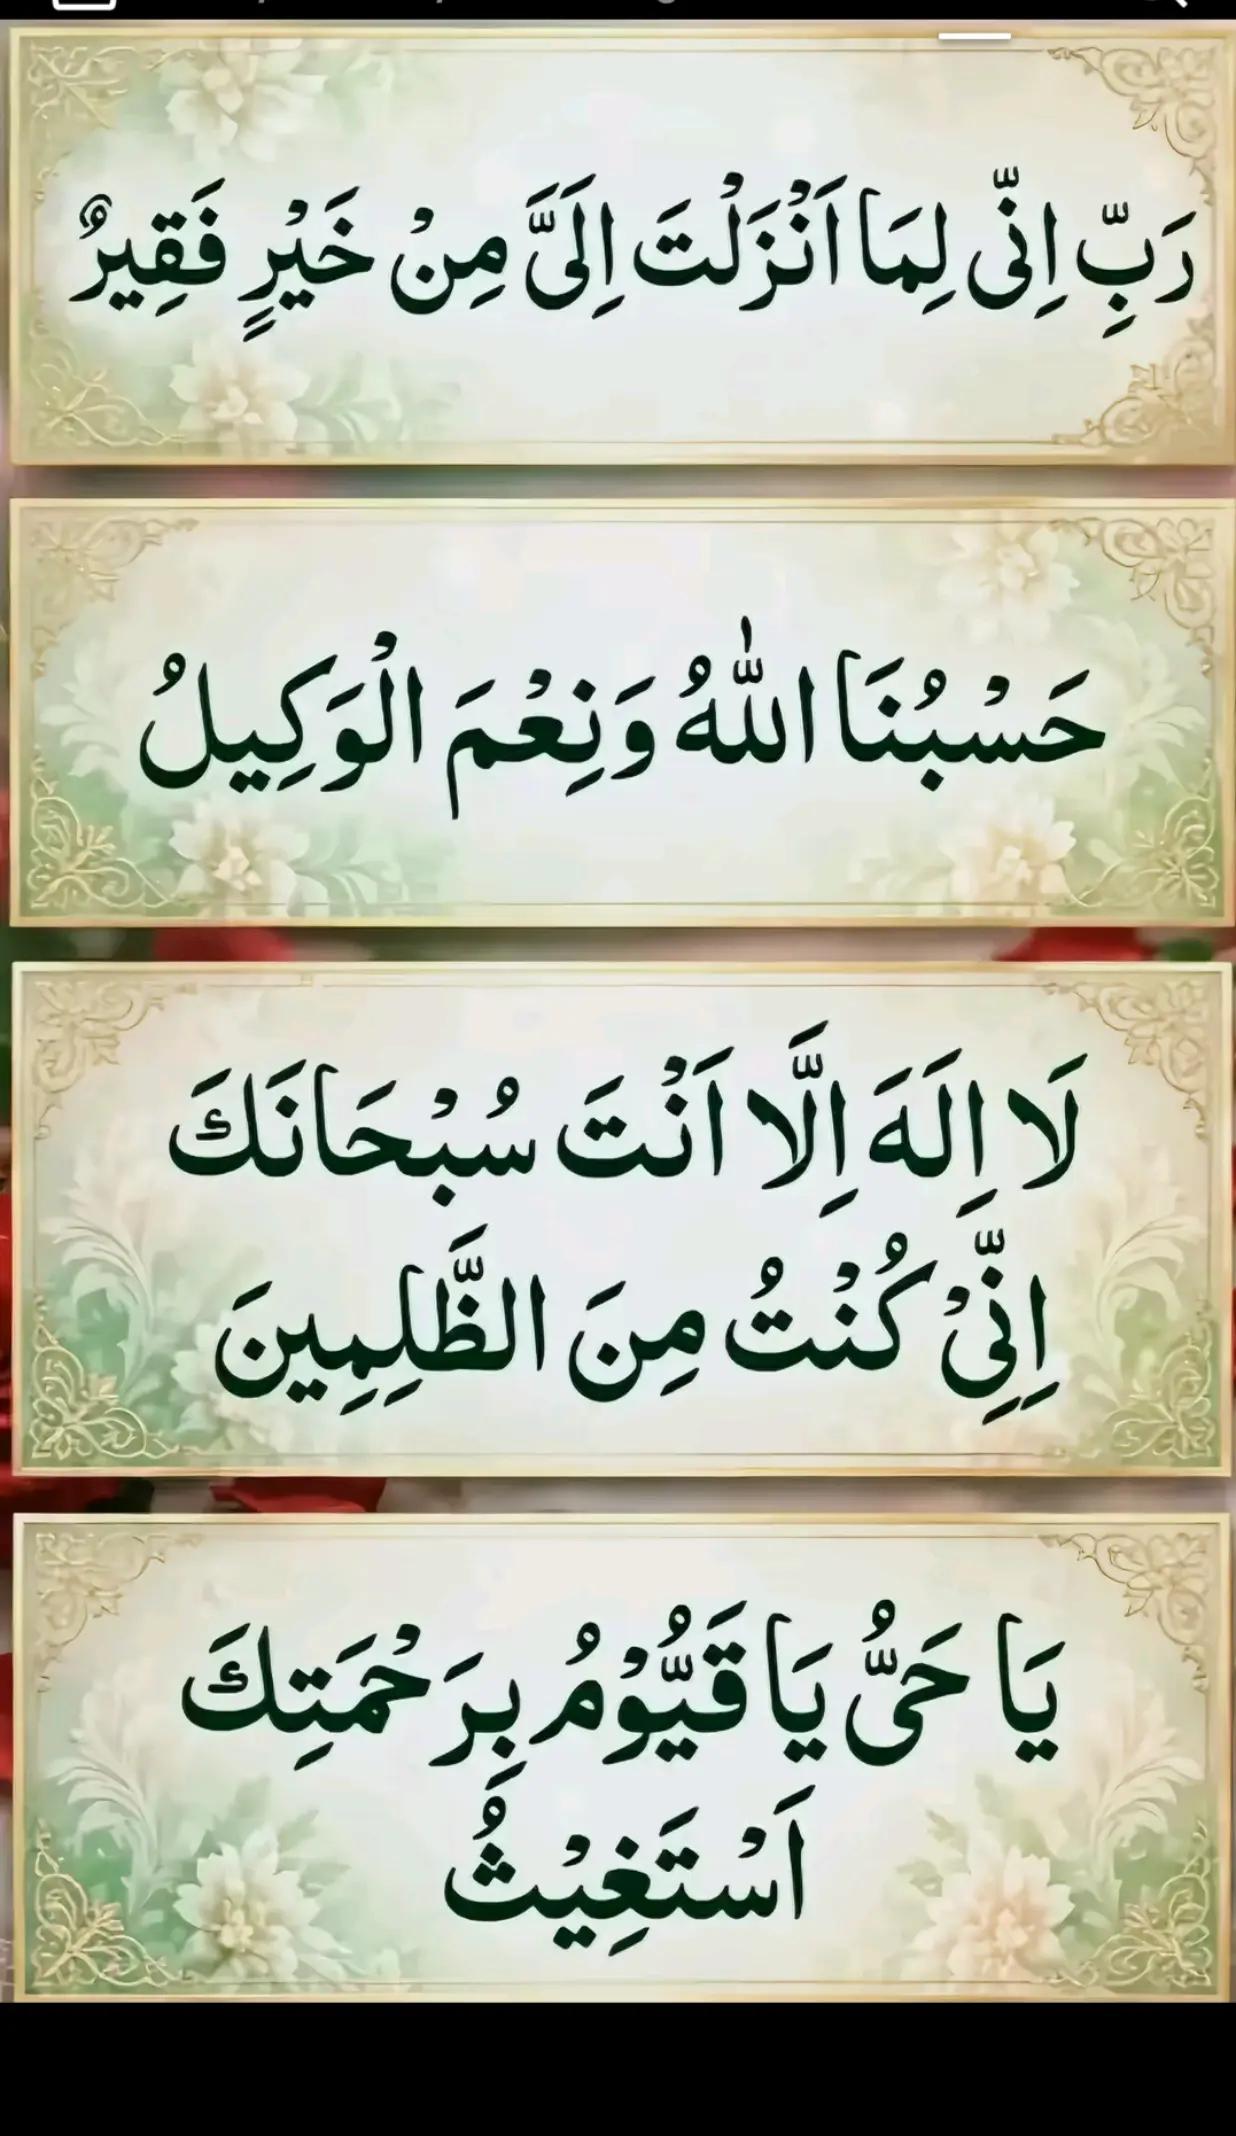 رَبِّ اِنِّی لِمَا اَنْزَلْتَ اِلَیَّ مِنْ خَیْرٍ فَقِیرٌ
حَسْبُنَا اللّٰهُ وَنِعْمَ الْوَكِیلُ
لَا اِلَهَ اِلَّا اَنْتَ سُبْحَانَكَ
اِنِّیْ كُنْتُ مِنَ الظَّلِمِینَ
یَا حَیُّ یَا قَیُّوْمُ بِرَحْمَتِكَ
اَسْتَغِیْثُ